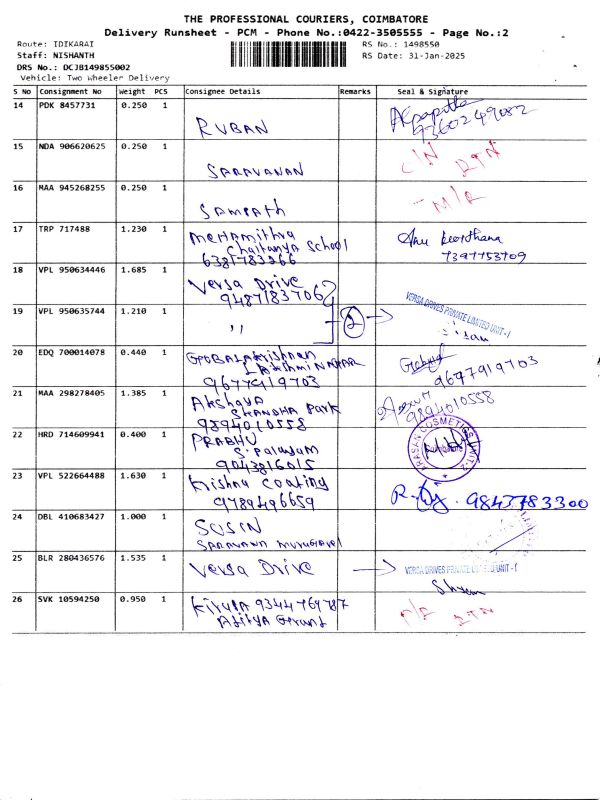 THE PROFESSIONAL COURIERS, COIMBATORE
Delivery Runsheet - PCM - Phone No.:0422-3505555 - Page No.:2
Route: IDIKARAI RS No.: 1498550
Staff: NISHANTH RS Date: 31-Jan-2025
DRS No.: DCJB149855002
Vehicle: Two Wheeler Delivery
S No Consignment No Weight PCS Consignee Details Remarks Seal & Signature
14 PDK 8457731 0.250 1
RUBAN 9360249082
15 NDA 906620625 0.250 1
SARAVANAN C/N RTN
16 MAA 945268255 0.250 1
SAMPATH
17 TRP 717488 1.230 1 Mehamithra
Chaitanya School
6381783266 7397753709
18 VPL 950634446 1.685 1 Versa Drive
9487183706 VERSA DRIVES PRIVATE LIMITED UNIT-I
19 VPL 950635744 1.210 1 2
,,
20 EDQ 700014078 0.440 1 Gpobalakrishnan
Lakshmi Nagar
9677919703 9677919703
21 MAA 298278405 1.385 1 Akshaya
SKANDHA Park
9894010558 9894010558
22 HRD 714609941 0.400 1 PRABHU
S. Palayam
9043816015 COSMETICS UNIT-2
23 VPL 522664488 1.630 1 Krishna Coating
9789496659 9847783300
24 DBL 410683427 1.000 1 SUSIN
25 BLR 280436576 1.535 1 Versa Drive VERSA DRIVES PRIVATE LIMITED UNIT-I
26 SVK 10594250 0.950 1 9344769787
RTN